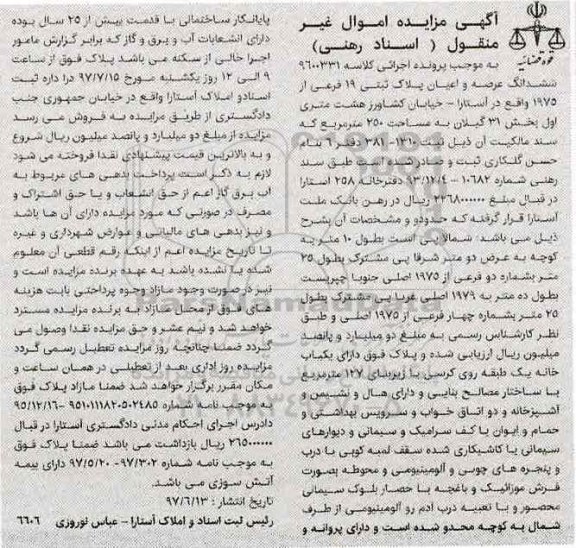 آگهی مزایده اموال غیر
منقول ( اسناد رهنی)
قوه قضائیه
به موجب پرونده اجرائی کلاسه ۹۶۰۰۳۳۱
ششدانگ عرصه و اعیان پلاک ثبتی ۱۹ فرعی از
۱۹۷۵ واقع در آستارا - خیابان کشاورز هشت متری
اول بخش ۳۱ گیلان به مساحت ۲۵۰ مترمربع که
سند مالکیت آن ذیل ثبت ۱۳۱۰- ۳۸۱ دفتر ۶ بنام
حسن گلکاری ثبت و صادر شده است طبق سند
رهنی شماره ۱۰۶۸۲ – ۹۳/۱۲/۰۴ دفترخانه ۲۵۸ آستارا
در قبال مبلغ ۲۲۶۸۰۰۰۰۰۰ ریال در رهن بانک ملت
آستارا قرار گرفته که حدودو و مشخصات آن بشرح
ذیل می باشد: شمالا پی است بطول ۱۰ متر به
کوچه به عرض دو متر شرقا پی مشترک بطول ۲۵
متر بشماره دو فرعی از ۱۹۷۵ اصلی جنوبا چپریست
بطول ده متر به ۱۹۷۹ اصلی غربا پی مشترک بطول
۲۵ متر بشماره چهار فرعی از ۱۹۷۵ اصلی و طبق
نظر کارشناس رسمی به مبلغ دو میلیارد و پانصد
میلیون ریال ارزیابی شده و پلاک فوق دارای یکباب
خانه یک طبقه روی کرسی با زیربنای ۱۲۷ مترمربع
با ساختار مصالح بنایی و دارای هال و نشیمن و
آشپزخانه و دو اتاق خواب و سرویس بهداشتی و
حمام و ایوان با کف سرامیک و سیمانی و دیوارهای
سیمانی یا کاشیکاری شده سقف لمبه کوبی با درب
و پنجره های چوبی و آلومینیومی و محوطه بصورت
فرش موزائیک و باغچه با حصار بلوک سیمانی
محصور و با تعبیه درب ادم رو آلومینیومی از طرف
شمال به کوچه محدو شده است و دارای پروانه و
پایانکار ساختمانی با قدمت بیش از ۲۵ سال بوده
دارای انشعابات آب و برق و گاز که برابر گزارش مامور
اجرا خالی از سکنه می باشد پلاک فوق از ساعت
۹ الی ۱۲ روز یکشنبه مورخ ۹۷/۷/۱۵ درا داره ثبت
اسنادو املاک آستارا واقع در خیابان جمهوری جنب
دادگستری از طریق مزایده به فروش می رسد
مزایده از مبلغ دو میلیارد و پانصد میلیون ریال شروع
و به بالاترین قیمت پیشنهادی نقدا فروخته می شود
لازم به ذکر است پرداخت بدهی های مربوط به
آب برق گاز اعم از حق انشعاب و یا حق اشتراک و
مصرف در صورتی که مورد مزایده دارای آن ها باشد
و نیز بدهی های مالیاتی و عوارض شهرداری و غیره
تا تاریخ مزایده اعم از اینکه رقم قطعی آن معلوم
شده یا نشده باشد به عهده برنده مزایده است و
نیز در صورت وجود مازاد وجوه پرداختی بابت هزینه
های فوق از محل مازاد به برنده مزایده مسترد
خواهد شد و نیم عشر و حق مزایده نقدا وصول می
گردد ضمنا چنانچه روز مزایده تعطیل رسمی گردد
مزایده روز اداری بعد از تعطیلی در همان ساعت و
مکان مقرر برگزار خواهد شد ضمنا مازاد پلاک فوق
به موجب نامه شماره ۹۵۱۰۱۱۱۸۲۰۵۰۲۴۸۵ -۹۵/۱۲/۱۶
دادرس اجرای احکام مدنی دادگستری آستارا در قبال
۲۶۵۰۰۰۰۰۰ ریال بازداشت می باشد ضمنا پلاک فوق
به موجب نامه شماره ۹۷/۳۰۲- ۹۷/۵/۲۰ دارای بیمه
آتش سوزی می باشد.
تاریخ انتشار : ۹۷/۶/۱۳
رئیس ثبت اسناد و املاک آستارا – عباس نوروزی ۶۶۰۶